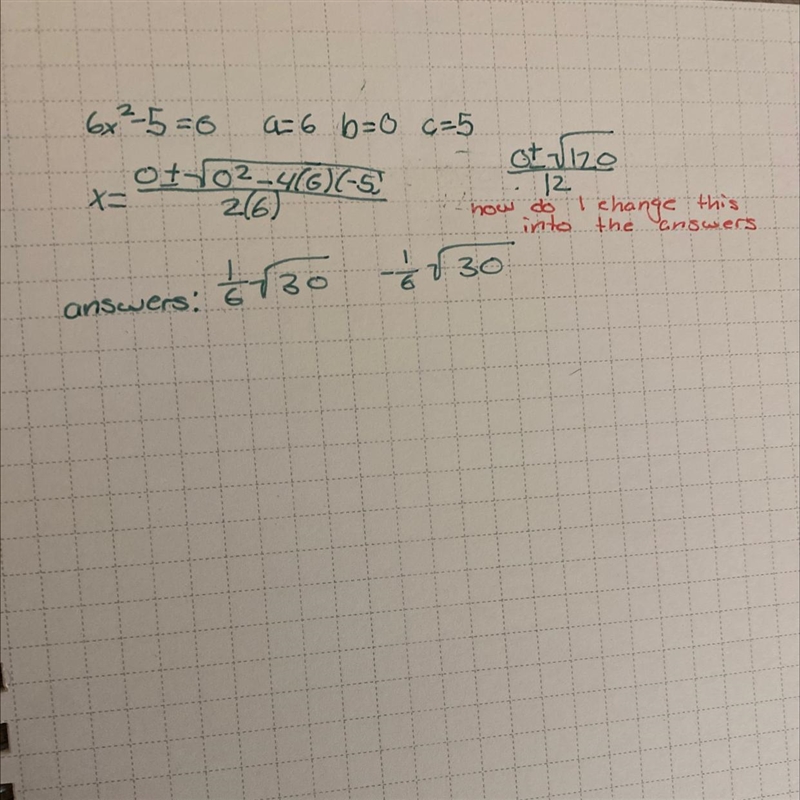 6x²-5=0 a=6 b=0 c=5
x= 0±√0²-4(6)(-5)
2(6)
0±√120
12
how do I change this
into the answers
answers: 1/6√30 -1/6√30